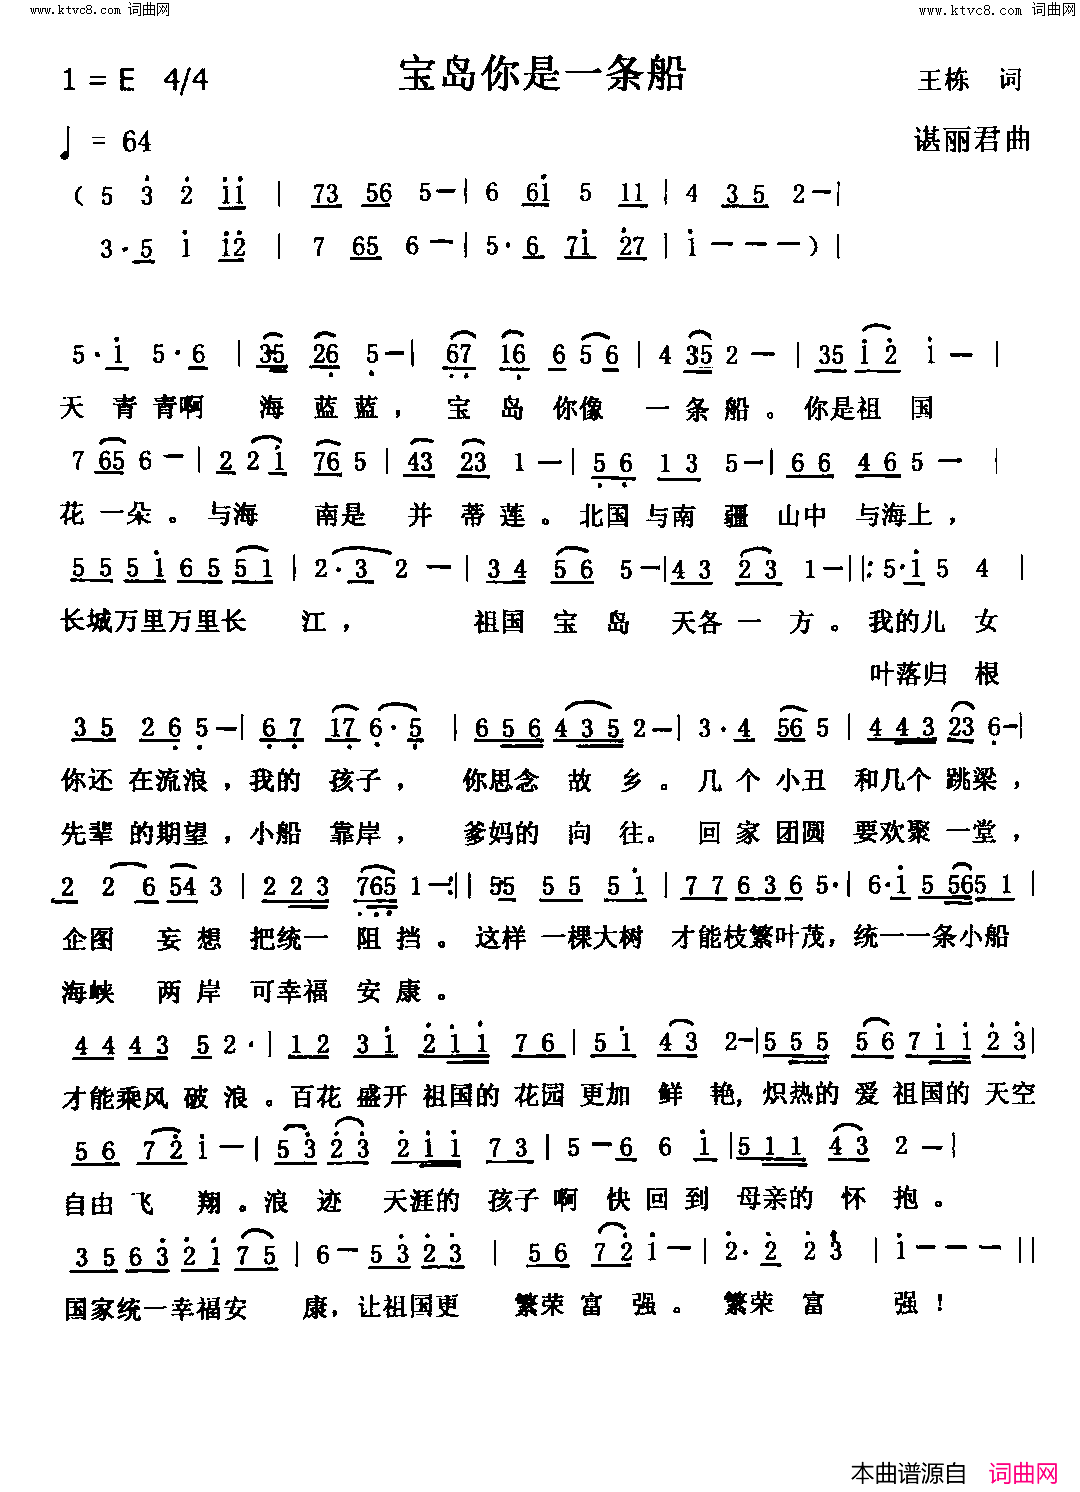 www.ktvc8.com 词曲网 www.ktvc8.com 词曲网
1 = E 4/4 宝岛你是一条船 王栋 词
♩ = 64 谌丽君曲
( 5 3 2 11 | 73 56 5 – | 6 61 5 11 | 4 35 2 – |
3 · 5 1 12 | 7 65 6 – | 5 · 6 71 27 | 1 – – – ) |
5 · 1 5 · 6 | 35 26 5 – | 67 16 6 5 6 | 4 35 2 – | 35 1 2 1 – |
天 青 青啊 海 蓝 蓝， 宝 岛 你像 一 条 船 。 你是祖 国
7 65 6 – | 2 2 1 76 5 | 43 23 1 – | 5 6 1 3 5 – | 6 6 4 6 5 – |
花 一 朵 。 与海 南是 并 蒂 莲 。 北国 与南 疆 山中 与海上，
5 5 5 1 6 5 5 1 | 2 · 3 2 – | 3 4 5 6 5 – | 4 3 2 3 1 – ||: 5 · 1 5 4 |
长城万里万里长 江， 祖国 宝 岛 天各 一 方 。 我的儿 女
叶落归 根
3 5 2 6 5 – | 6 7 17 6 · 5 | 6 5 6 4 3 5 2 – | 3 · 4 56 5 | 4 4 3 23 6 – |
你还 在流浪，我的 孩子， 你思念 故 乡 。 几 个 小丑 和几个 跳梁，
先辈 的期望，小船 靠岸， 爹妈的 向 往。 回 家 团圆 要欢聚 一 堂，
2 2 6 54 3 | 2 2 3 765 1 – :|| 55 5 5 5 1 | 7 7 6 3 6 5 · | 6 · 1 5 565 1 |
企图 妄 想 把统一 阻 挡 。 这样 一棵大树 才能枝繁叶茂，统一一条小船
海峡 两 岸 可幸福 安 康 。
4 4 4 3 5 2 · | 1 2 3 1 2 1 1 7 6 | 5 1 4 3 2 – | 5 5 5 5 6 7 1 1 2 3 |
才能乘风 破 浪 。百花 盛开 祖国的 花园 更加 鲜 艳，炽热的 爱 祖国的 天空
5 6 7 2 1 – | 5 3 2 3 2 1 1 7 3 | 5 – 6 6 1 | 5 1 1 4 3 2 – |
自由 飞 翔 。浪 迹 天涯的 孩子 啊 快 回 到 母亲的 怀 抱 。
3 5 6 3 2 1 7 5 | 6 – 5 3 2 3 | 5 6 7 2 1 – | 2 · 2 2 3 | 1 – – – ||
国家统一幸福安 康，让祖国更 繁荣 富 强 。 繁荣 富 强！
本曲谱源自 词曲网